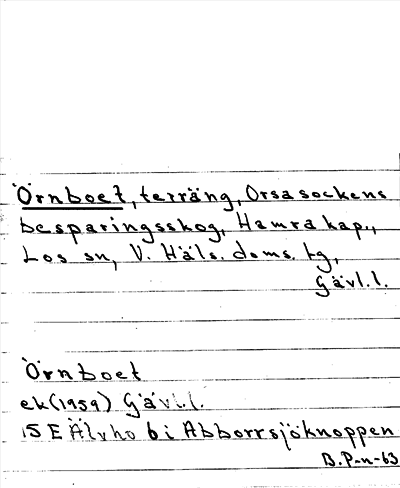 Örnboet, terräng, Orsa sockens
besparingsskog, Hamra kap.,
Los sn, V. Häls. doms. tg,
Gävl.l.
Örnboet
ek (1959) Gävl.l.
15 E Älvho 6 i Abborrsjöknoppen
B.P-n-63